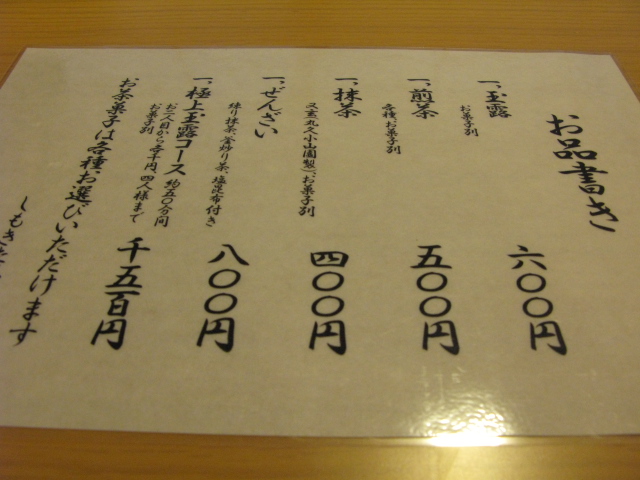 お品書き
一、玉露
お菓子別
六〇〇円
一、煎茶
各種お菓子別
五〇〇円
一、抹茶
又玄丸久小山園製)、お菓子別
四〇〇円
一、ぜんざい
練り抹茶、釜炒り茶、塩昆布付き
八〇〇円
一、極上玉露コース 約五〇分間
お二人目から各千円、四人様まで
お菓子別
千五百円
お茶菓子は各種お選びいただけます